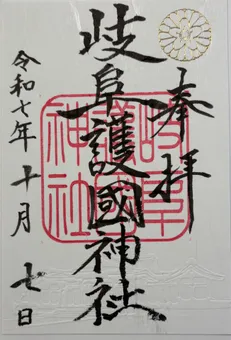 奉拝
岐阜護國神社
令和七年十月七日
岐阜
護國
神社